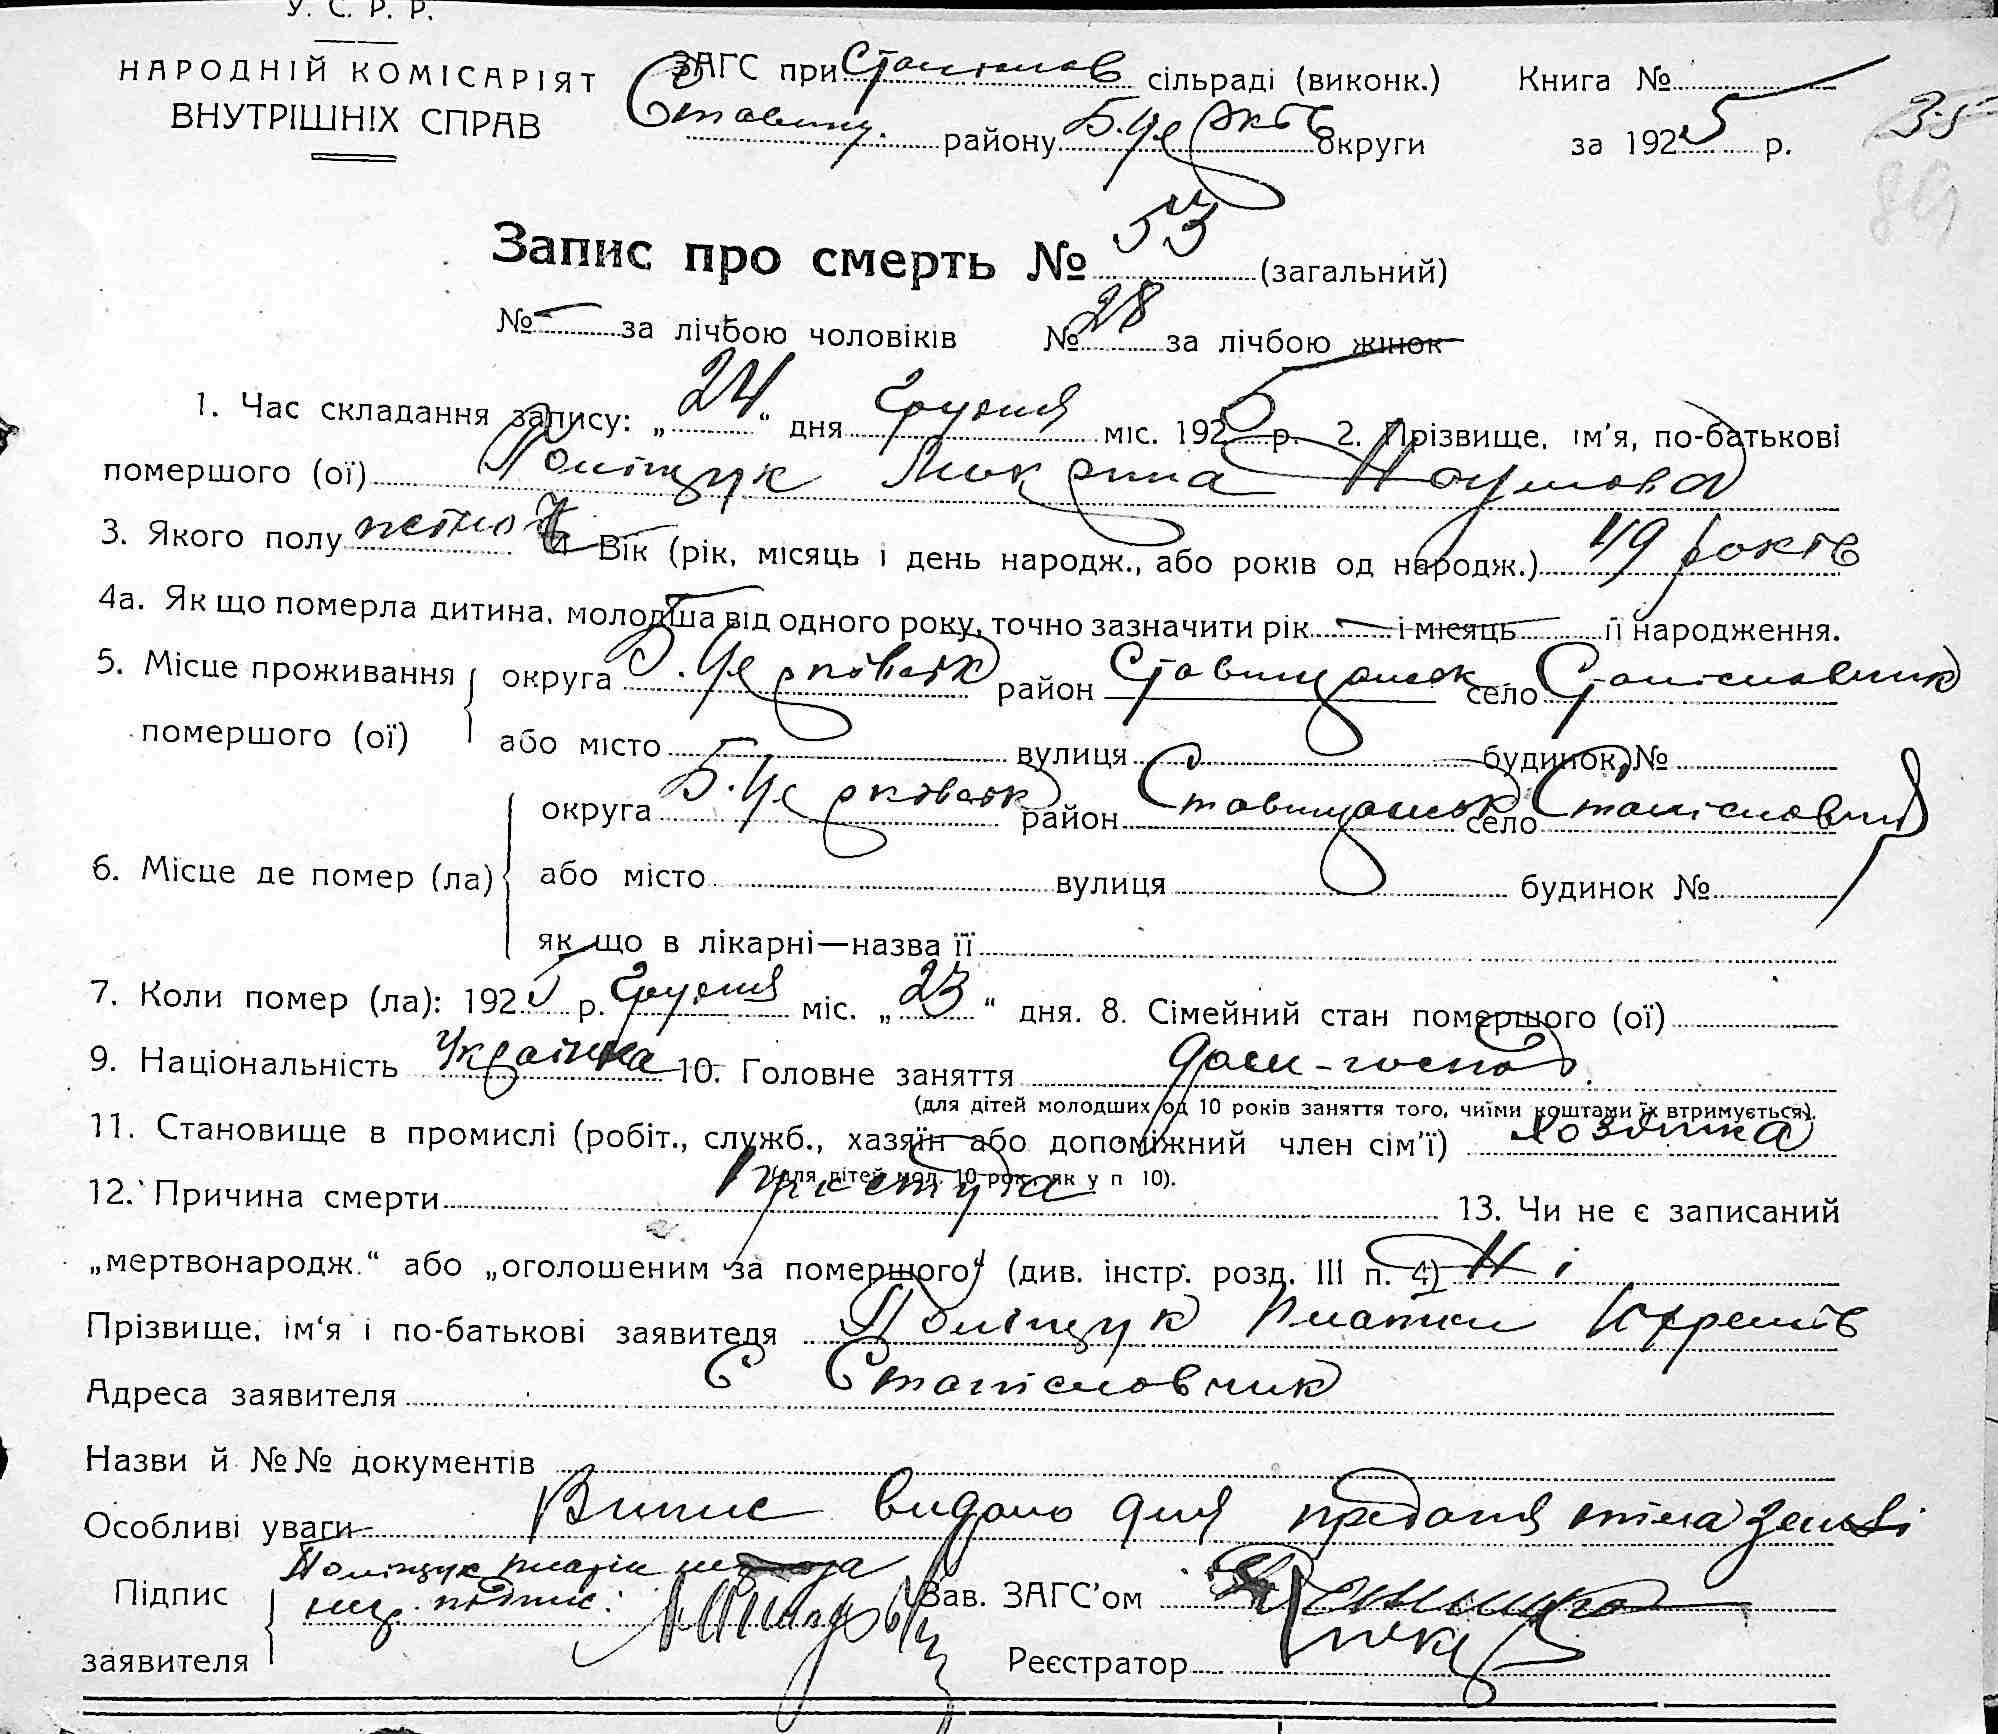 У. С. Р. Р.
НАРОДНІЙ КОМІСАРІЯТ
ВНУТРІШНІХ СПРАВ
ЗАГС при Станіслав сільраді (виконк.) Книга №
Ставищ. району Б.Церків округи за 1925 р.
35
89
Запис про смерть № 53 (загальний)
№ — за лічбою чоловіків № 28 за лічбою жінок
1. Час складання запису: „24“ дня Грудня міс. 1925 р. 2. Прізвище, ім'я, по-батькові
помершого (ої) Поліщук Мокрина Наумова
3. Якого полу 4 Вік (рік, місяць і день народж., або років од народж.) 49 років
4а. Як що померла дитина, молодша від одного року, точно зазначити рік — і місяць її народження.
5. Місце проживання помершого (ої) округа Б.Церківськ район Ставищанськ село Станіславчик
або місто вулиця будинок №
6. Місце де помер (ла) округа Б.Церківськ район Ставищанськ село Станіславчик
або місто вулиця будинок №
як що в лікарні—назва її
7. Коли помер (ла): 1925 р. Грудня міс. „23“ дня. 8. Сімейний стан помершого (ої)
9. Національність Українка 10. Головне заняття дом-господ.
(для дітей молодших од 10 років заняття того, чиїми коштами їх втримується).
11. Становище в промислі (робіт., служб., хазяїн або допоміжний член сім'ї) Хозяйка
(для дітей мол. 10 рок. як у п 10).
12. Причина смерти Простуда 13. Чи не є записаний
„мертвонародж.“ або „оголошеним за помершого“ (див. інстр. розд. III п. 4) Ні
Прізвище, ім'я і по-батькові заявителя Поліщук
Адреса заявителя С Станіславчик
Назви й №№ документів
Особливі уваги Випис видано для предання тіла землі
Підпис заявителя Поліщук
Зав. ЗАГС'ом
Реєстратор